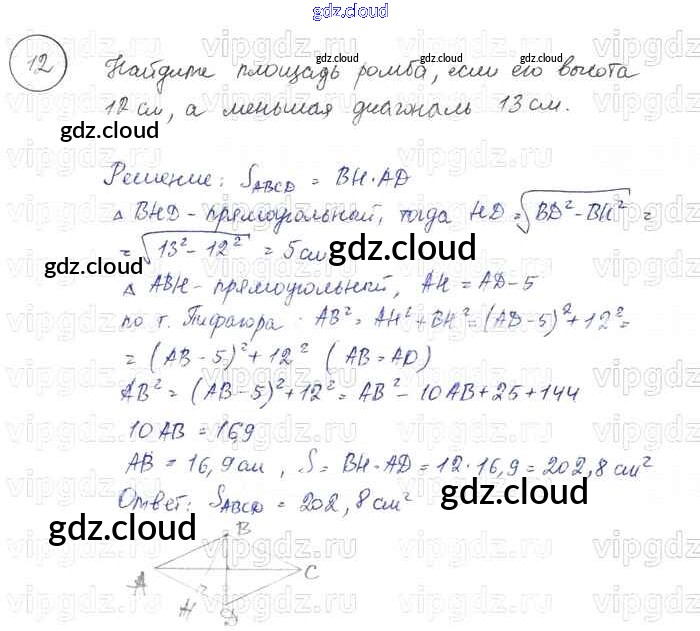 gdz.cloud
12 Найдите площадь ромба, если его высота
12 см, а меньшая диагональ 13 см.
gdz.cloud
gdz.cloud
Решение: S_ABCD = BH·AD
△ BHD - прямоугольный, тогда HD = √(BD² - BH²) =
= √(13² - 12²) = 5 см
gdz.cloud
gdz.cloud
△ ABH - прямоугольный, AH = AD - 5
по т. Пифагора AB² = AH² + BH² = (AD - 5)² + 12² =
= (AB - 5)² + 12² (AB = AD)
AB² = (AB - 5)² + 12² = AB² - 10AB + 25 + 144
10 AB = 169
AB = 16,9 см, S = BH·AD = 12·16,9 = 202,8 см²
Ответ: S_ABCD = 202,8 см²
gdz.cloud
gdz.cloud
B
A
C
H
D
gdz.cloud
vipgdz.ru